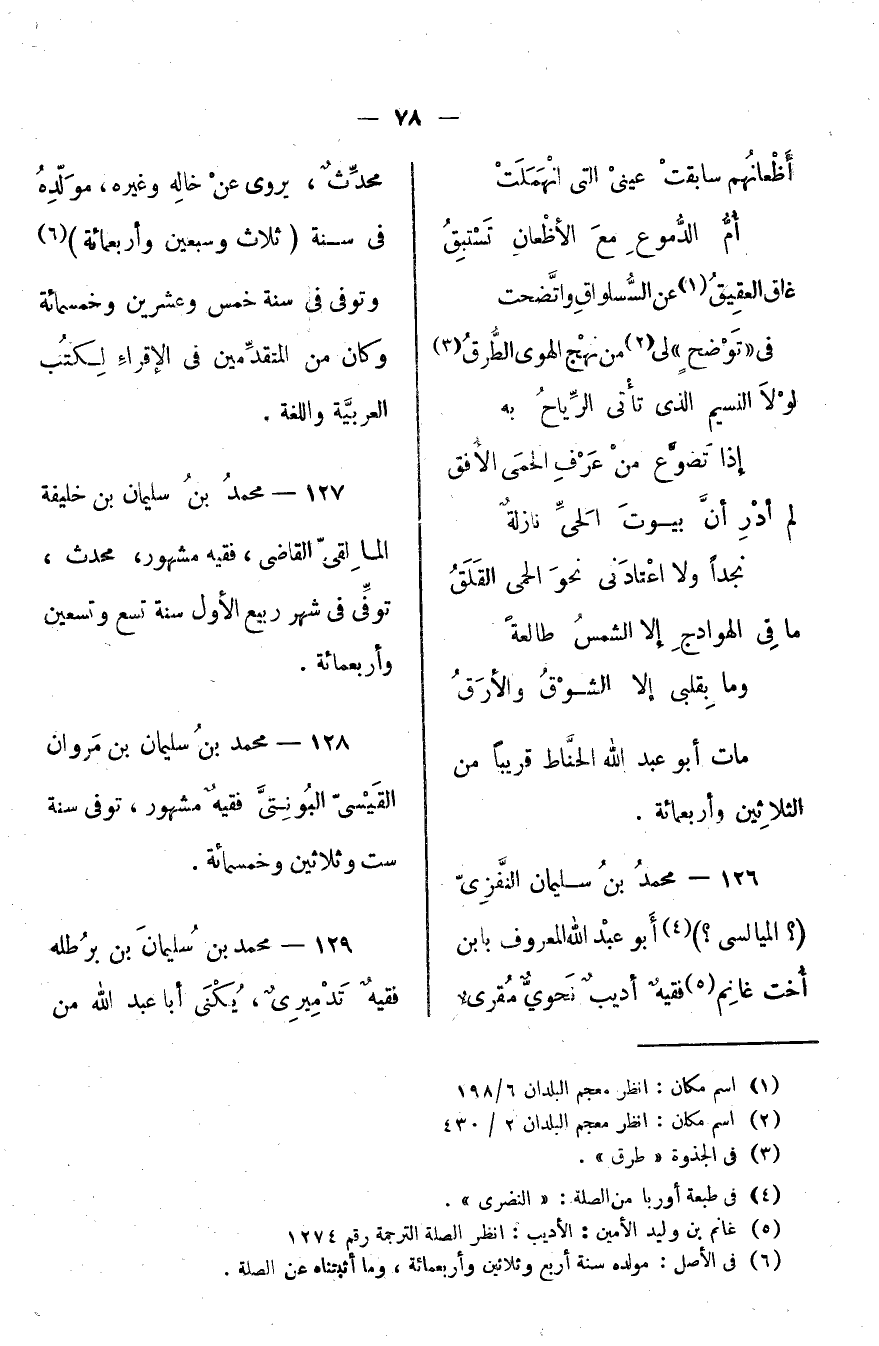 — ٧٨ —
أَظْعانُهم سابقتْ عينىْ التى انْهَمَلَتْ
أمُّ الدُّموعِ معَ الأظْعانِ تَسْتبِقُ
عاق العقيقُ(١) عن السُّلوا‌ق واتَّضحت
فى «تَوْضح» لى(٢) من نهْج الهوى الطُّرقُ(٣)
لوْلاَ النسيم الذى تأتى الرِّياحُ به
إذا تَضوَّع منْ عَرْفِ الحمَى الأفق
لم أدْرِ أنَّ بيوتَ الحىِّ نازلةٌ
نجداً ولا اعْتادَنى نحوَ الحمى القلَقُ
ما فِى الهوادجِ إلا الشمسُ طالعةً
وما بِقلبى إلا الشوْقُ والأرَقُ
مات أبو عبد الله الحنَّاط قريباً من
الثلاثِين وأربعمائة .
١٢٦ — محمدُ بنُ سليمان النَّفْزِىّ
(؟ الميالسى ؟)(٤) أَبو عبْد الله المعروف بابن
أُخت غانِم(٥) فقيهٌ أديبٌ نَحوىٌّ مُقرىء
محدِّثٌ ، يروى عنْ خالِهِ وغيره ، موَلّدِهُ
فى سنة ( ثلاث وسبعين وأربعمائة )(٦)
وتوفى فى سنة خمس وعشرين وخمسمائة
وكان من المتقدِّمين فى الإقراءِ لِكتُب
العربيَّة واللغة .
١٢٧ — محمدُ بنُ سليمان بن خليفة
المالِقىّ القاضى ، فقيه مشهور، محدث ،
توفِّى فى شهر ربيع الأول سنة تسع وتسعين
وأربعمائة .
١٢٨ — محمد بنُ سليمان بن مَروان
القَيْسىّ البُونِتىَّ فقيهٌ مشهور ، توفى سنة
ست وثلاثين وخمسمائة .
١٢٩ — محمد بن سُليمانَ بن برْطله
فقيهٌ تَدْمِيرىٌ ، يُكْنَى أبا عبد الله من
(١) اسم مكان : انظر معجم البلدان ٦/١٩٨
(٢) اسم مكان : انظر معجم البلدان ٢ / ٤٣٠
(٣) فى الجذوة « طرق » .
(٤) فى طبعة أوربا من الصلة : « النضرى » .
(٥) غانم بن وليد الأمين : الأديب : انظر الصلة الترجمة رقم ١٢٧٤
(٦) فى الأصل : مولده سنة أربع وثلاثين وأربعمائة ، وما أثبتناه عن الصلة .